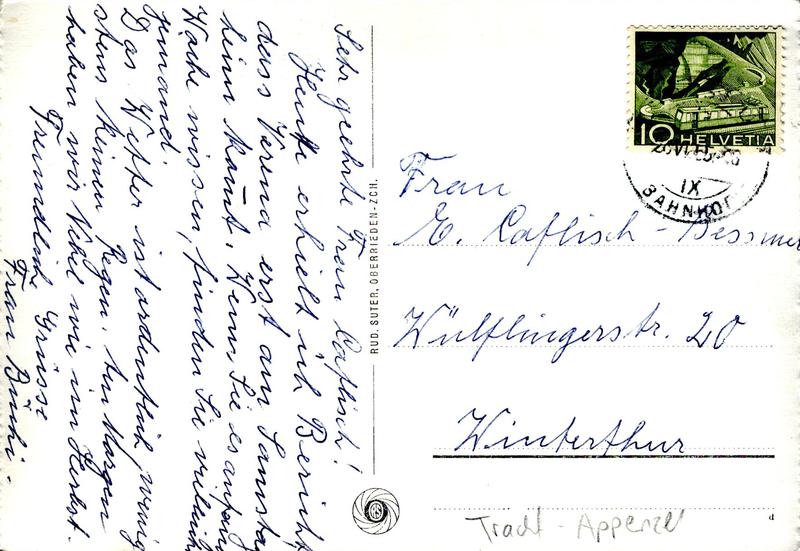 Sehr geehrte Frau Caflisch!
Heute erhielt ich Bericht
dass Verena erst am Samstag
heim kommt. Wenn Sie es anfangs
Woche wissen, finden Sie vielleicht
jemand.
Das Wetter ist ordentlich, wenig
stens keinen Regen. Am Morgen
haben wir Nebel wie im Herbst.
Freundliche Grüsse
Frau Büchi.
RUD. SUTER, OBERRIEDEN-ZCH.
10 HELVETIA
IX
BAHNHOF
Frau
E. Caflisch-Dessmer
Wülflingerstr. 20
Winterthur
d
Tracht - Appenzell